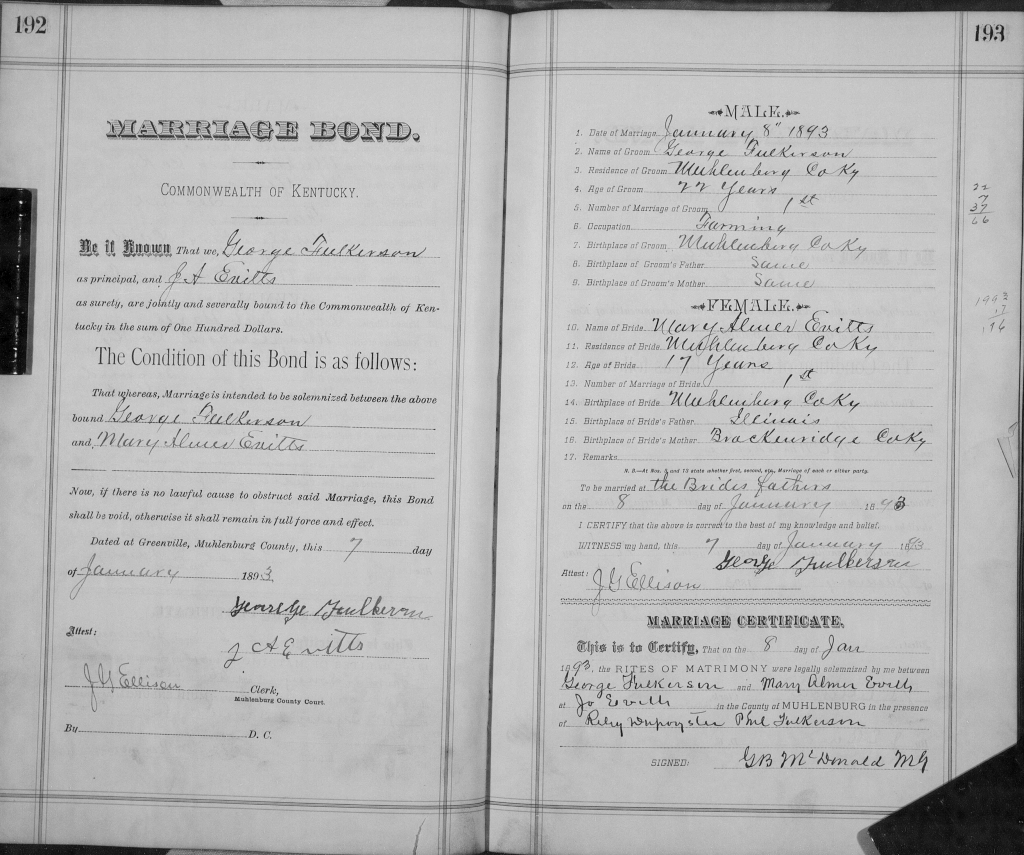 192
MARRIAGE BOND.
COMMONWEALTH OF KENTUCKY.
Be it Known That we, George Fulkerson
as principal, and J A Evitts
as surety, are jointly and severally bound to the Commonwealth of Ken-
tucky in the sum of One Hundred Dollars.
The Condition of this Bond is as follows:
That whereas, Marriage is intended to be solemnized between the above
bound George Fulkerson
and Mary Almer Evitts
Now, if there is no lawful cause to obstruct said Marriage, this Bond
shall be void, otherwise it shall remain in full force and effect.
Dated at Greenville, Muhlenburg County, this 7 day
of January 1893.
George Fulkerson
Attest:
J A Evitts
J G Ellison Clerk,
Muhlenburg County Court.
By D. C.
193
MALE.
1. Date of Marriage January 8" 1893
2. Name of Groom George Fulkerson
3. Residence of Groom Muhlenberg Co Ky
4. Age of Groom 22 Years
5. Number of Marriage of Groom 1st
6. Occupation Farming
7. Birthplace of Groom Muhlenberg Co Ky
8. Birthplace of Groom's Father Same
9. Birthplace of Groom's Mother Same
FEMALE.
10. Name of Bride Mary Almer Evitts
11. Residence of Bride Muhlenberg Co Ky
12. Age of Bride 17 Years
13. Number of Marriage of Bride 1st
14. Birthplace of Bride Muhlenberg Co Ky
15. Birthplace of Bride's Father Illinais
16. Birthplace of Bride's Mother Brackenridge Co Ky
17. Remarks
N. B.—At Nos. 5 and 13 state whether first, second, etc., Marriage of each or either party.
To be married at the Brides fathers
on the 8 day of January 1893
I CERTIFY that the above is correct to the best of my knowledge and belief.
WITNESS my hand, this 7 day of January 1893
George Fulkerson
Attest: J G Ellison
MARRIAGE CERTIFICATE.
This is to Certify, That on the 8 day of Jan
1893, the RITES OF MATRIMONY were legally solemnized by me between
George Fulkerson and Mary Almer Evitts
at Jo Evitts in the County of MUHLENBURG in the presence
of Riley Dupoyster Phil Fulkerson
SIGNED: GB McDonald MG
22
7
37
66